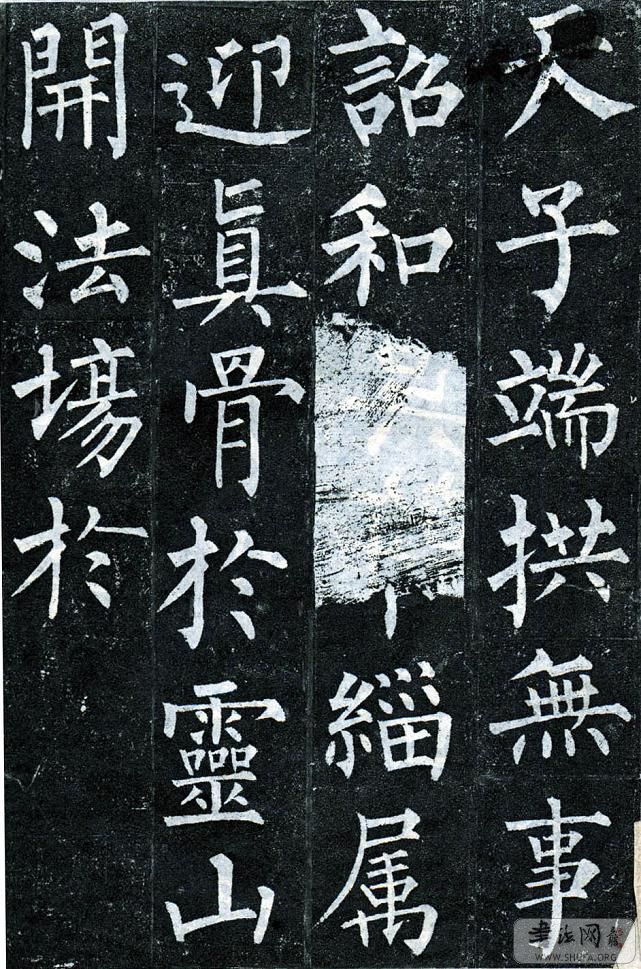 天子端拱無事
詔和緇属
迎真骨於靈山
開法場於
書法网
WWW.SHUFA.ORG